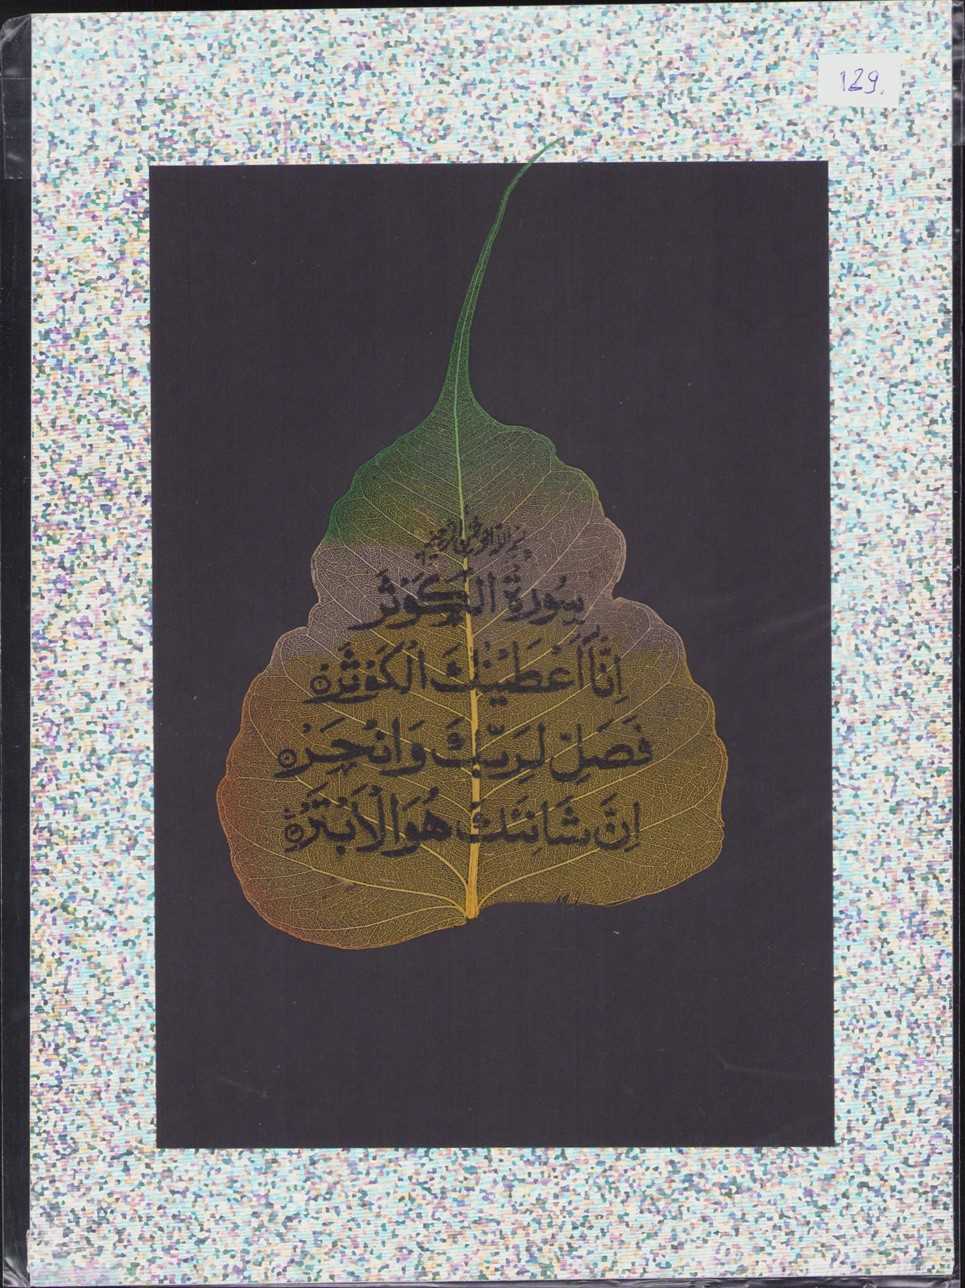 129.
بسم الله الرحمن الرحيم
سُورَةُ الكَوْثَر
اِنَّآ اَعْطَيْنٰكَ الْكَوْثَرَ ۝
فَصَلِّ لِرَبِّكَ وَانْحَرْ ۝
اِنَّ شَانِئَكَ هُوَ الْاَبْتَرُ ۝